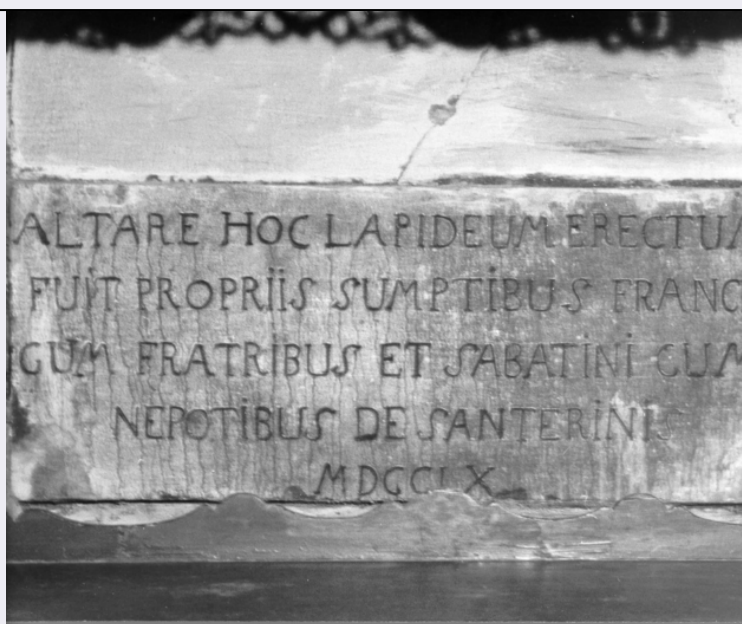 ALTARE HOC LAPIDEUM ERECTUM
FUIT PROPRIIS SUMPTIBUS FRANC
CUM FRATRIBUS ET SABATINI CUM
NEPOTIBUS DE SANTERINIS
MDCCLX